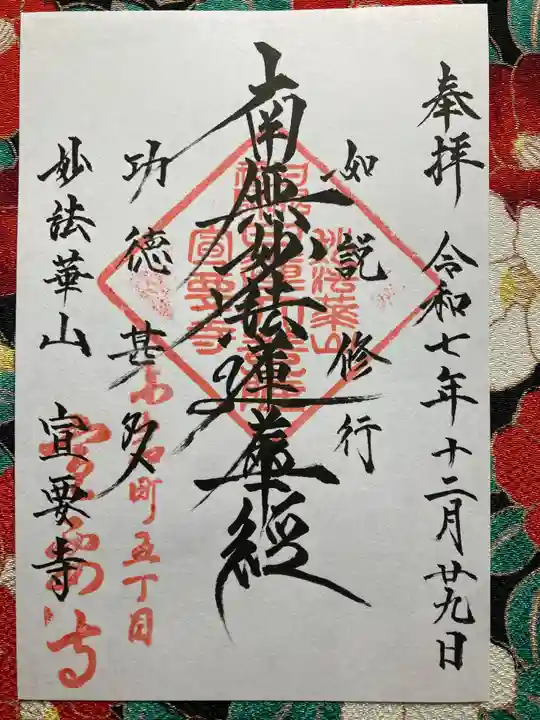 奉拝 令和七年十二月廿九日
如説修行
南無妙法蓮華経
功徳甚多
妙法華山 宣要寺
妙法華山
宣要寺
町五丁目